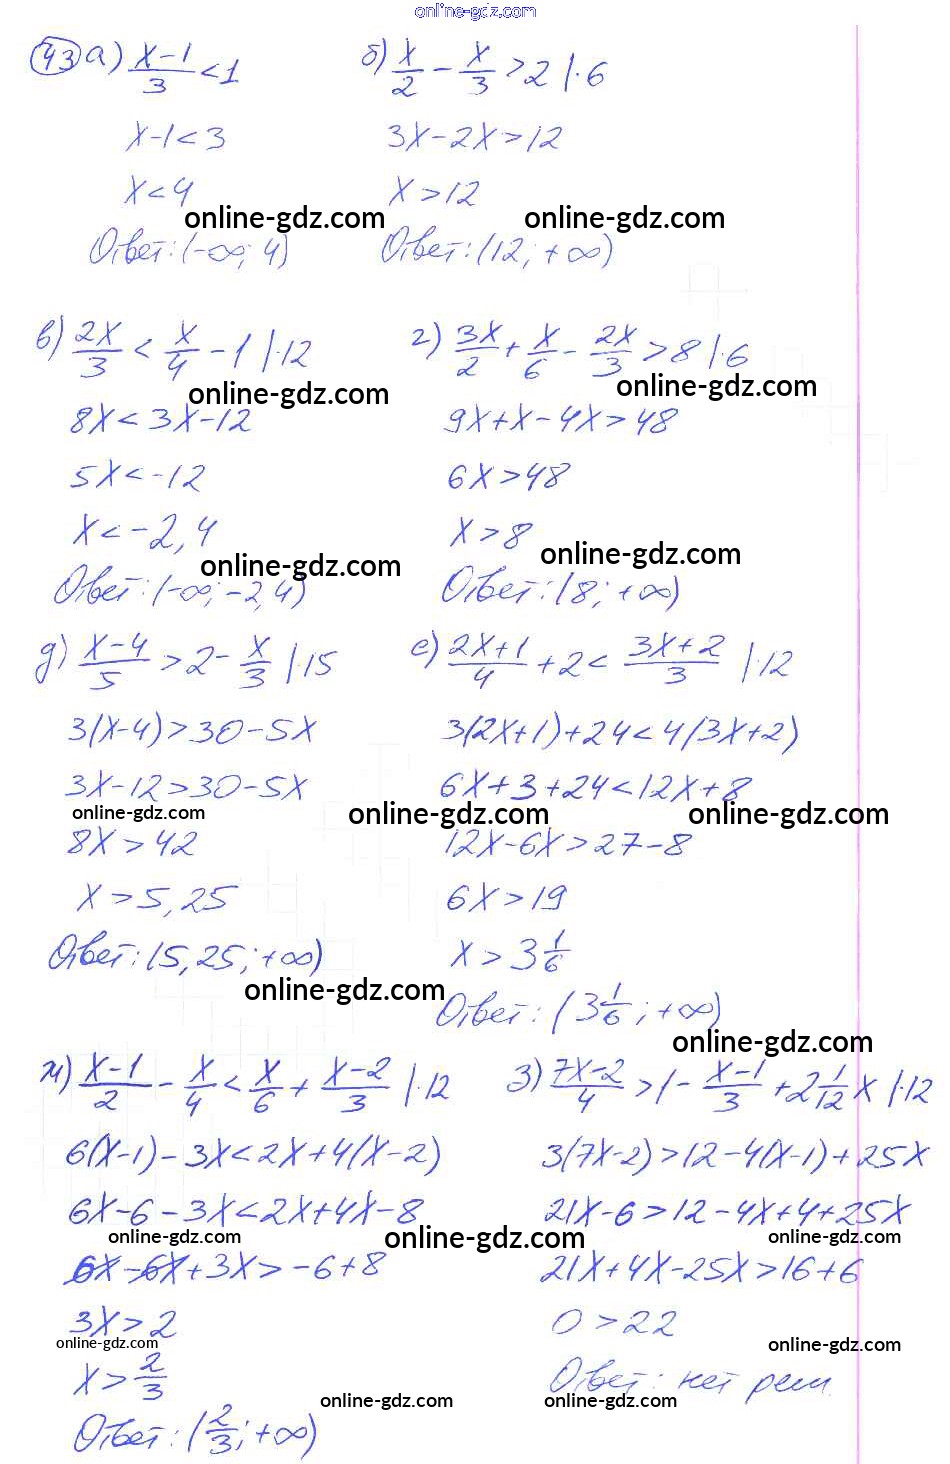 online-gdz.com
43 а) (x-1)/3 < 1
б) x/2 - x/3 > 2 |·6
x-1 < 3
3x-2x > 12
x < 4
x > 12
online-gdz.com online-gdz.com
Ответ: (-∞; 4)
Ответ: (12; +∞)
в) 2x/3 < x/4 - 1 |·12
г) 3x/2 + x/6 - 2x/3 > 8 |·6
online-gdz.com online-gdz.com
8x < 3x-12
9x+x-4x > 48
5x < -12
6x > 48
x < -2,4
x > 8
online-gdz.com online-gdz.com
Ответ: (-∞; -2,4)
Ответ: (8; +∞)
д) (x-4)/5 > 2 - x/3 |·15
е) (2x+1)/4 + 2 < (3x+2)/3 |·12
3(x-4) > 30-5x
3(2x+1)+24 < 4(3x+2)
3x-12 > 30-5x
6x+3+24 < 12x+8
online-gdz.com online-gdz.com online-gdz.com
8x > 42
12x-6x > 27-8
x > 5,25
6x > 19
Ответ: (5,25; +∞)
x > 3 1/6
online-gdz.com
Ответ: (3 1/6; +∞)
online-gdz.com
ж) (x-1)/2 - x/4 < x/6 + (x-2)/3 |·12
з) (7x-2)/4 > 1 - (x-1)/3 + 2 1/12 x |·12
6(x-1) - 3x < 2x+4(x-2)
3(7x-2) > 12-4(x-1)+25x
6x-6-3x < 2x+4x-8
21x-6 > 12-4x+4+25x
online-gdz.com online-gdz.com online-gdz.com
6x-6x+3x > -6+8
21x+4x-25x > 16+6
3x > 2
0 > 22
online-gdz.com online-gdz.com
x > 2/3
Ответ: нет реш.
online-gdz.com online-gdz.com
Ответ: (2/3; +∞)